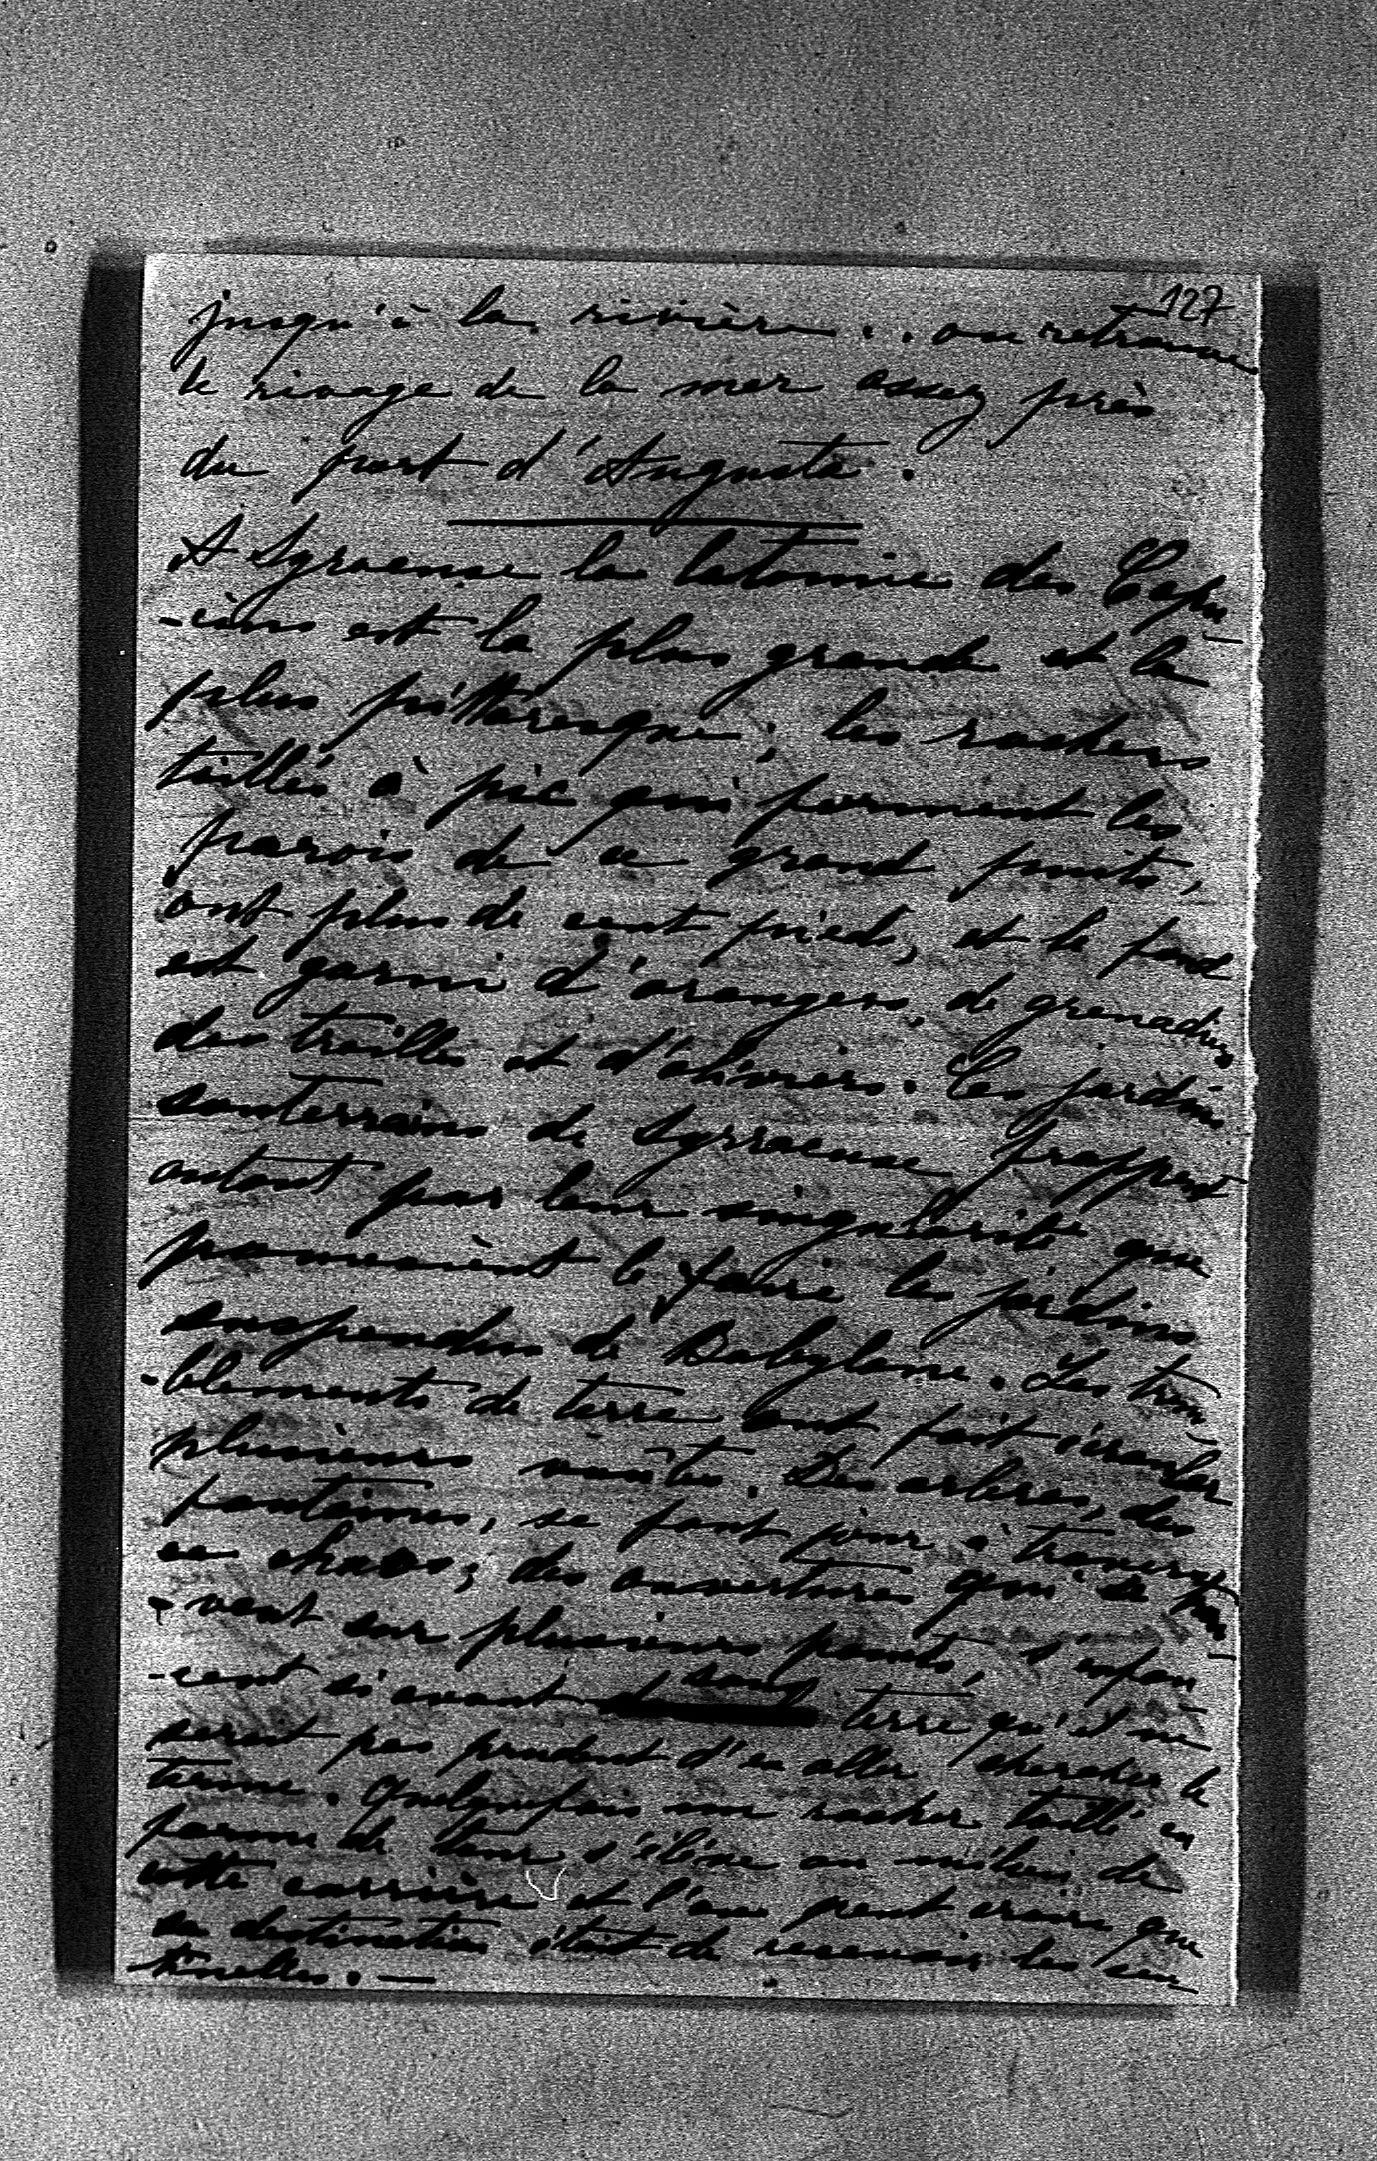 127
jusqu'à la rivière... on retrouve
le rivage de la mer assez près
du port d'Augusta.
A Syracuse la latomie des Capu
-cins est la plus grande et la
plus pittoresque; les rochers
taillés à pic qui forment les
parois de ce grand puits,
ont plus de cent pieds, et le fond
est garni d'orangers, de grenadiers
des treilles et d'oliviers. Ces jardins
souterrains de Syracuse frappent
autant par leur singularité que
pouvaient le faire les jardins
suspendus de Babylone. Les trem-
-blements de terre ont fait écrouler
plusieurs voûtes. Des arbres, des
fontaines, se font jour à travers
ce chaos; des ouvertures qui se trou-
-vent sur plusieurs points, s'enfon
-cent si avant sous terre qu'il ne
serait pas prudent d'en aller chercher le
terme. Quelquefois un rocher taillé en
forme de tour s'élève au milieu de
cette carrière et l'on peut croire que
sa destination était de recevoir les sen-
tinelles. —